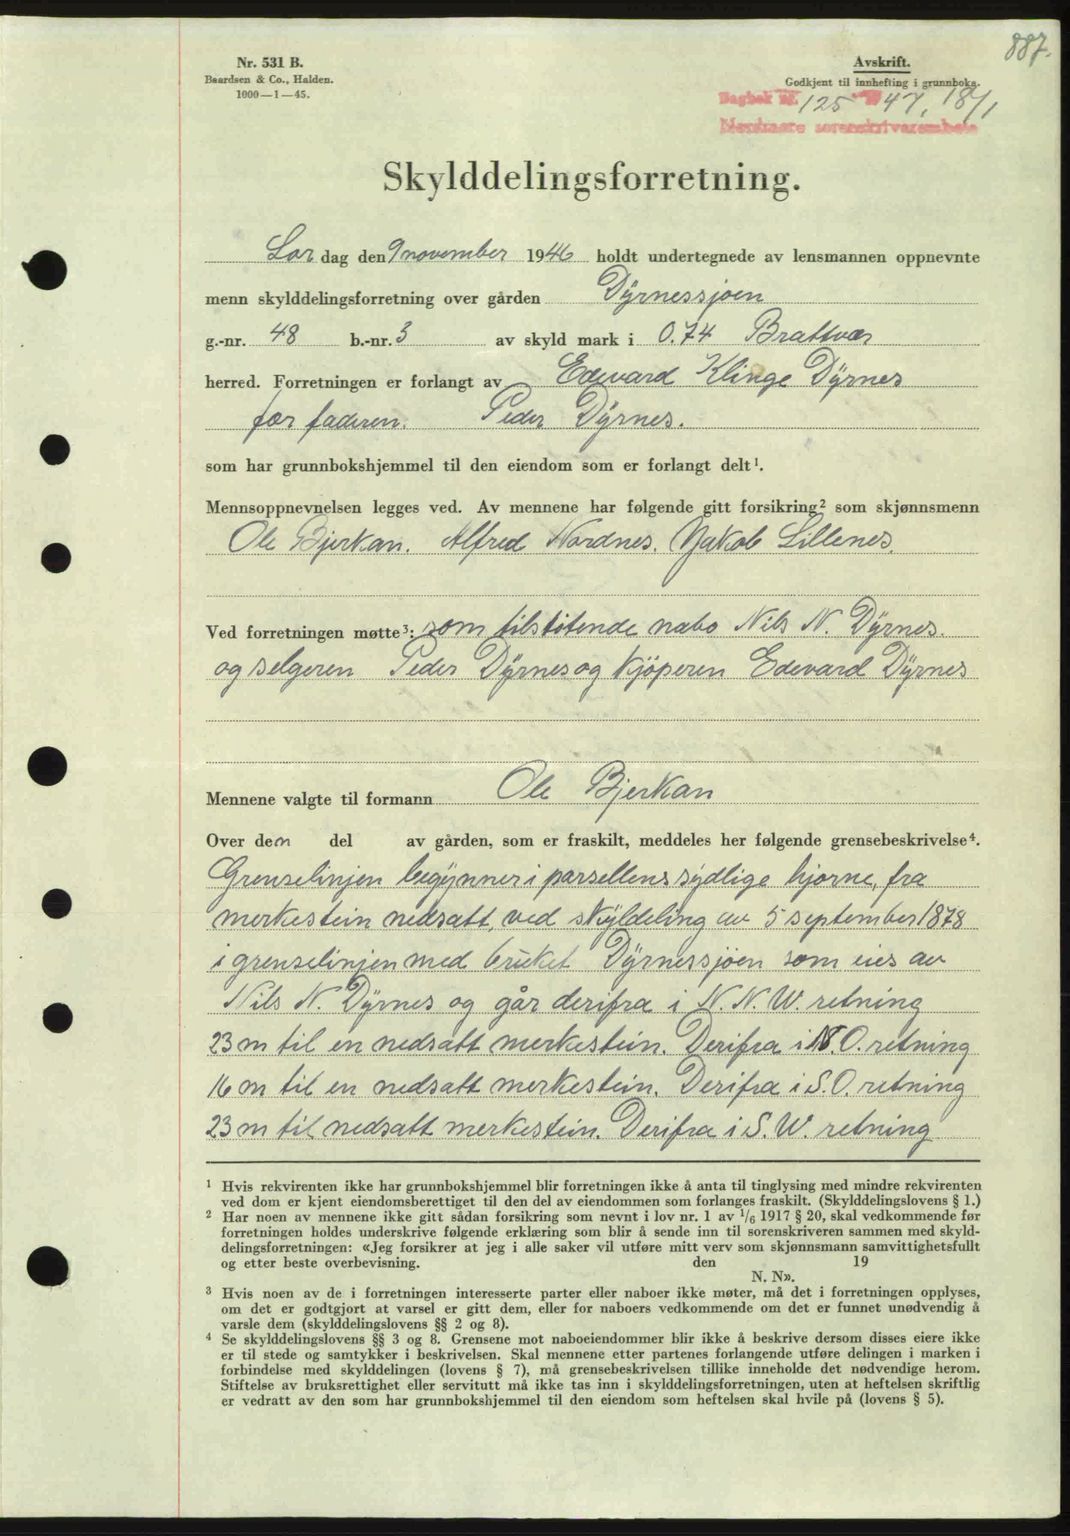 887.
Nr. 531 B.
Baardsen & Co., Halden.
1000—1—45.
Avskrift.
Godkjent til innhefting i grunnboka.
Dagbok nr. 125 1947, 18/1
Nordmøre sorenskriverembete
Skylddelingsforretning.
Lør dag den 9 november 1946 holdt undertegnede av lensmannen oppnevnte
menn skylddelingsforretning over gården Dÿrnessjøen
g.-nr. 48 b.-nr. 3 av skyld mark i 0.74 Brattvær
herred. Forretningen er forlangt av Edevard Klinge Dÿrnes
for faderen. Peder Dÿrnes.
som har grunnbokshjemmel til den eiendom som er forlangt delt¹.
Mennsoppnevnelsen legges ved. Av mennene har følgende gitt forsikring² som skjønnsmenn
Ole Bjerkan. Alfred Nordnes. Jakob Lillenes.
Ved forretningen møtte³: som tilstøtende nabo Nils N. Dÿrnes.
og selgeren Peder Dÿrnes og kjøperen Edevard Dÿrnes
Mennene valgte til formann Ole Bjerkan
Over den del av gården, som er fraskilt, meddeles her følgende grensebeskrivelse⁴.
Grenselinjen begÿnner i parsellens sÿdlige hjørne, fra
merkestein nedsatt, ved skÿldeling av 5 september 1878
i grenselinjen med bruket Dÿrnessjøen som eies av
Nils N. Dÿrnes og går derifra i N. N. W. retning
23 m til en nedsatt merkestein. Derifra i N. O. retning
16 m til en nedsatt merkestein. Derifra i S. O. retning
23 m til nedsatt merkestein. Derifra i S. W. retning
¹ Hvis rekvirenten ikke har grunnbokshjemmel blir forretningen ikke å anta til tinglysing med mindre rekvirenten
ved dom er kjent eiendomsberettiget til den del av eiendommen som forlanges fraskilt. (Skylddelingslovens § 1.)
² Har noen av mennene ikke gitt sådan forsikring som nevnt i lov nr. 1 av 1/6 1917 § 20, skal vedkommende før
forretningen holdes underskrive følgende erklæring som blir å sende inn til sorenskriveren sammen med skyld-
delingsforretningen: «Jeg forsikrer at jeg i alle saker vil utføre mitt verv som skjønnsmann samvittighetsfullt
og etter beste overbevisning. den 19
N. N».
³ Hvis noen av de i forretningen interesserte parter eller naboer ikke møter, må det i forretningen opplyses,
om det er godtgjort at varsel er gitt dem, eller for naboers vedkommende om det er funnet unødvendig å
varsle dem (skylddelingslovens §§ 2 og 8).
⁴ Se skylddelingslovens §§ 3 og 8. Grensene mot naboeiendommer blir ikke å beskrive dersom disses eiere ikke
er til stede og samtykker i beskrivelsen. Skal mennene etter partenes forlangende utføre delingen i marken i
forbindelse med skylddelingen (lovens § 7), må grensebeskrivelsen tillike inneholde det nødvendige herom.
Stiftelse av bruksrettighet eller servitutt må ikke tas inn i skylddelingsforretningen, uten at heftelsen skriftlig
er vedratt av den som har grunnbokshjemmel til den eiendom som heftelsen skal hvile på (lovens § 5).